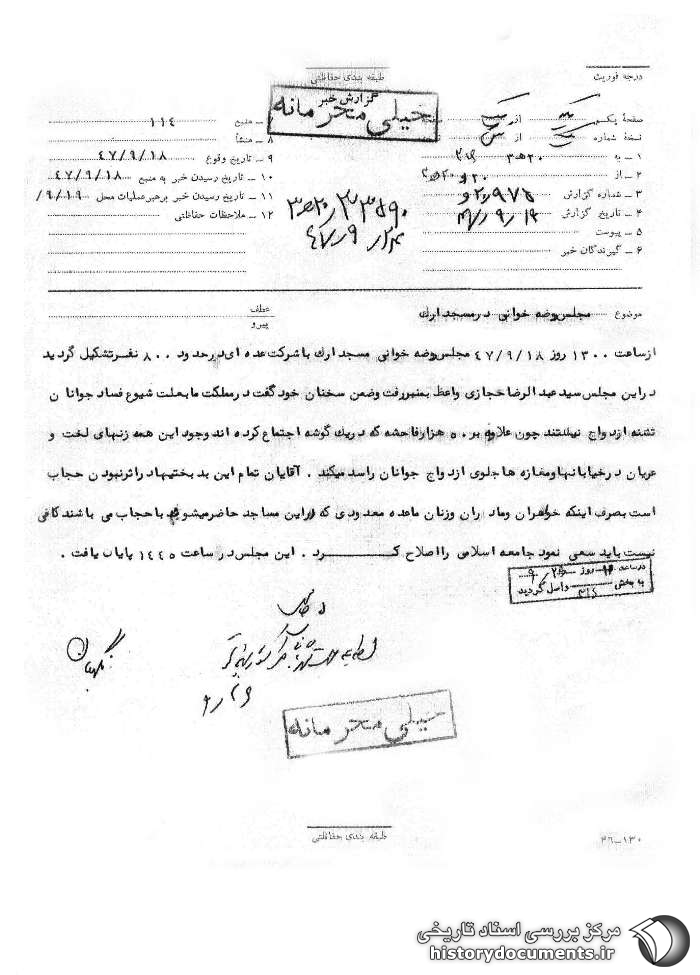 درجه فوریت
طبقه بندی حفاظتی
گزارش خبر
خیلی محرمانه
صفحهٔ یکم از
نسخهٔ شماره از
۱ ـ به ۲۰ هـ ۳ ۳۱۶
۲ ـ از ۲۰ و
۳ ـ شماره گزارش ۲۰۹۷۵
۴ ـ تاریخ گزارش ۴۷/۹/۱۹
۵ ـ پیوست
۶ ـ گیرندگان خبر
۷ ـ منبع ۱۱۴
۸ ـ منشأ
۹ ـ تاریخ وقوع ۴۷/۹/۱۸
۱۰ ـ تاریخ رسیدن خبر به منبع ۴۷/۹/۱۸
۱۱ ـ تاریخ رسیدن خبر برهبر عملیات محل ۹/۱۹/
۱۲ ـ ملاحظات حفاظتی
۴۷/۹/۲۴
موضوع مجلس روضه خوانی در مسجد ارک
عطف
پیرو
از ساعت ۱۳۰۰ روز ۴۷/۹/۱۸ مجلس روضه خوانی مسجد ارک با شرکت عده ای در حدود ۸۰۰ نفر تشکیل گردید
در این مجلس سید عبد الرضا حجازی واعظ بمنبر رفت وضمن سخنان خود گفت در مملکت ما بعلت شیوع فساد جوانان
تشنه ازدواج نیستند چون علاوه بر ۵۰ هزار فاحشه که در یک گوشه اجتماع کرده اند وجود این همه زنهای لخت و
عریان در خیابانها و مغازه ها جلوی ازدواج جوانان را سد میکند . آقایان تمام این بد بختیها در اثر نبودن حجاب
است بصرف اینکه خواهران ومادران وزنان ما عده معدودی که در این مساجد حاضر میشوند با حجاب می باشند کافی
نیست باید سعی نمود جامعه اسلامی را اصلاح کـــــرد . این مجلس در ساعت ۱۴۴۵ پایان یافت .
در ساعت روز ۹/۲۵
به بخش ۳۱۶ واصل گردید
نگهبان
خیلی محرمانه
طبقه بندی حفاظتی
۳۶ـ۱۳۰
مرکز بررسی اسناد تاریخی
historydocuments.ir